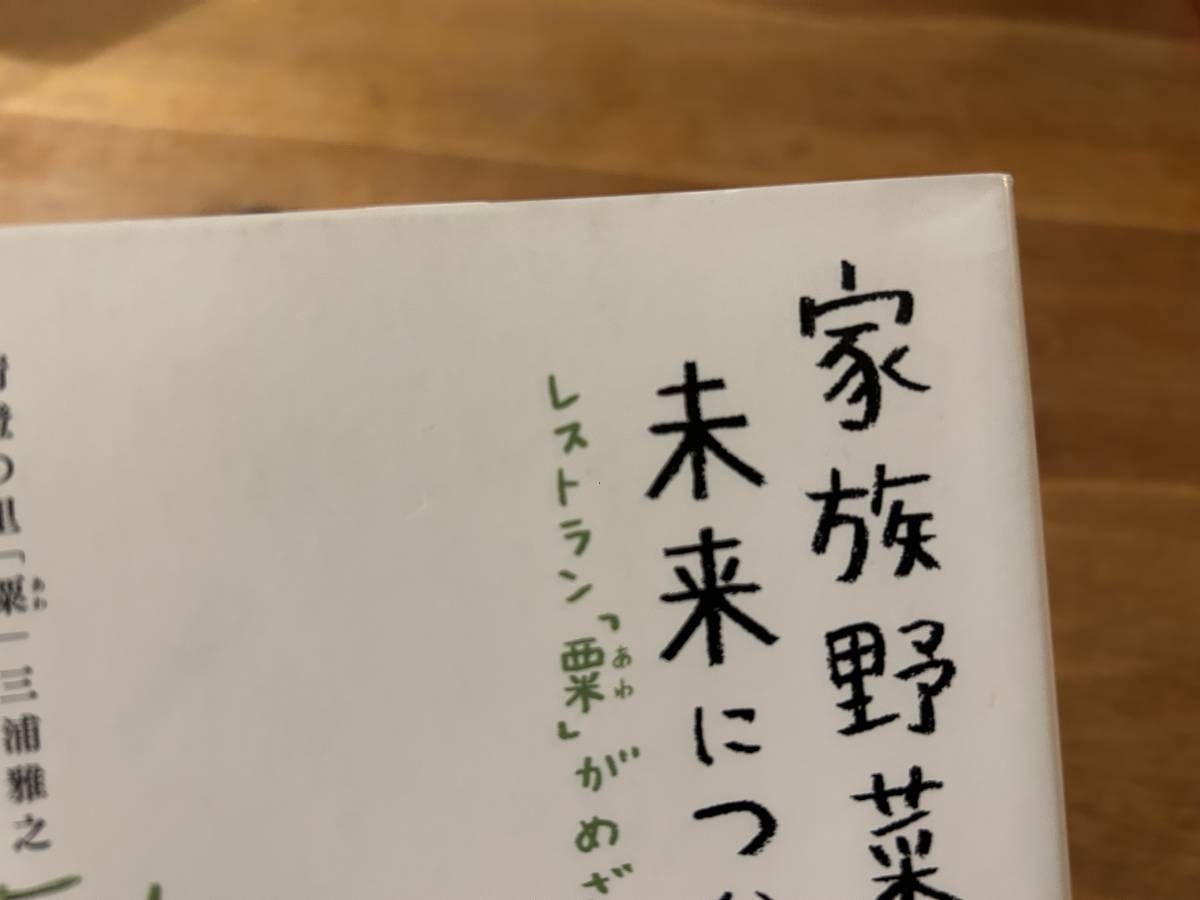 家族野菜
未来につ
レストラン「粟」がめざ
あわ
清澄の里「粟」三浦雅之
あわ